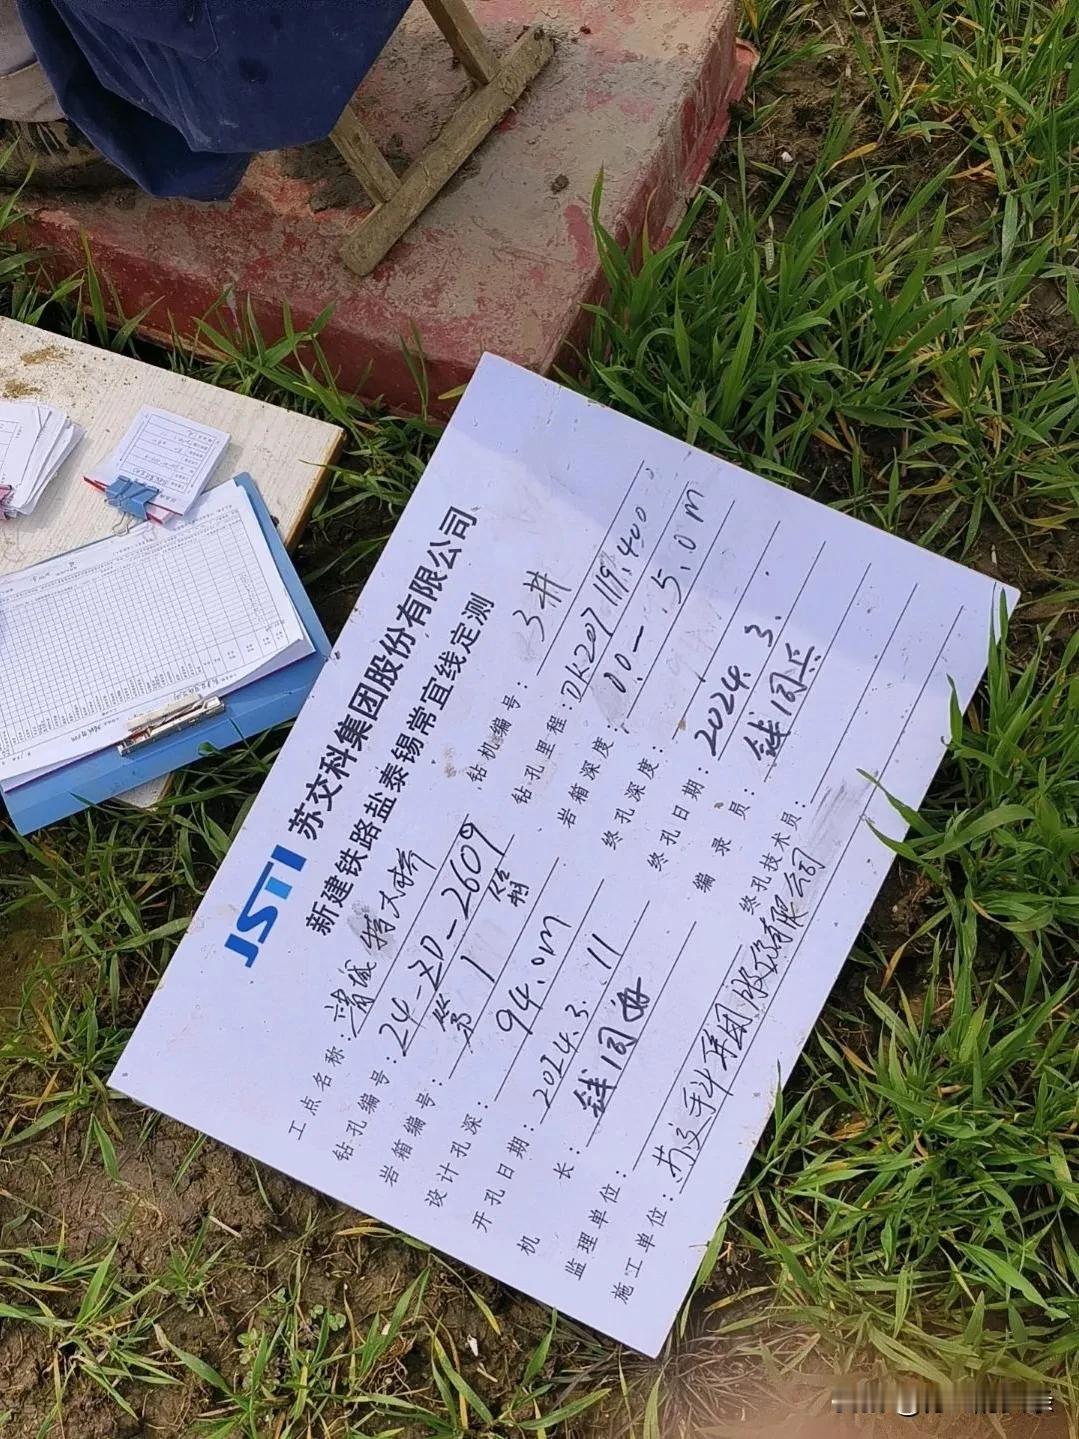 JSTI 苏交科集团股份有限公司
新建铁路盐泰锡常宜线定测
工点名称： 特大桥 钻机编号： 3井
钻孔编号：24-ZD-2609 钻孔里程：DK207119.400
岩箱编号： 第1箱 岩箱深度：0.0—5.0m
设计孔深： 94.0m 终孔深度：
开孔日期：2024.3.11 终孔日期：2024.3.
机 长： 编 录 员：
监理单位： 终孔技术员：
施工单位：苏交科集团股份有限公司